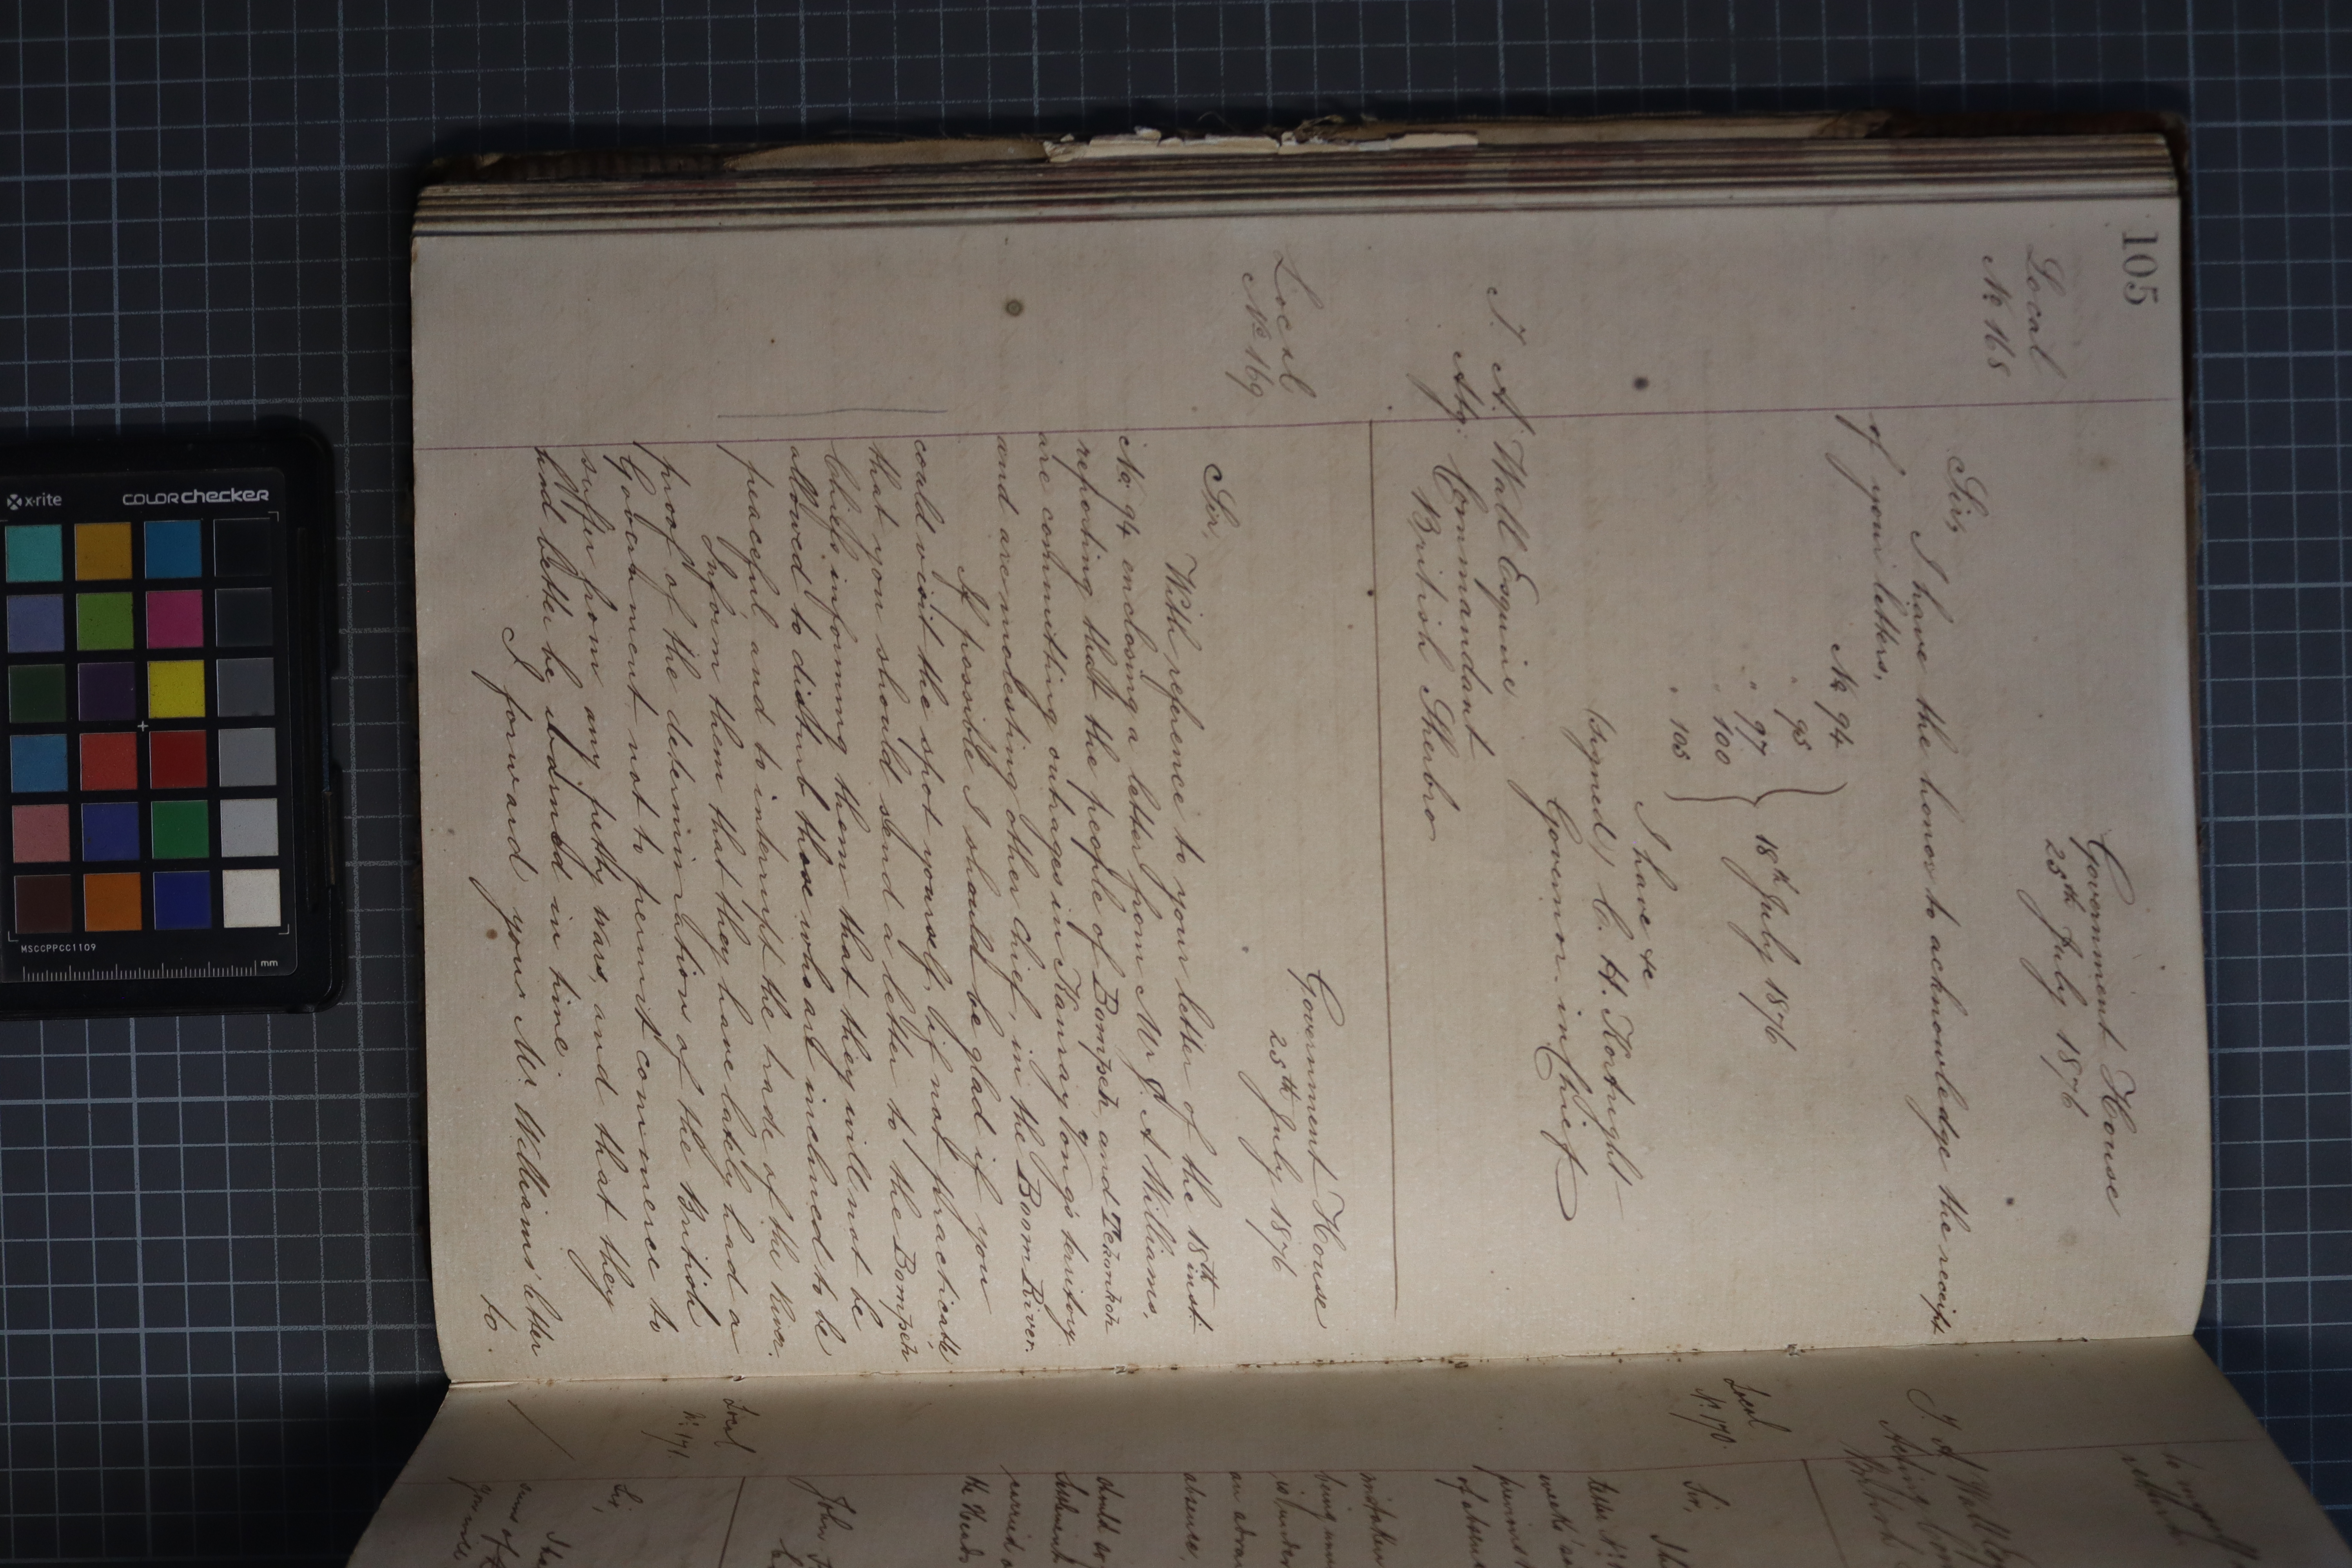 105
Local
No 168
Government House
25th July 1876
Sir,
I have the honor to acknowledge the receipt
of your letters,
No 94
" 95
" 97
" 100
" 103
18th July 1876
I have &c
(signed) C. H. Kortright
Governor in Chief
T. A. Wall Esquire
Actg. Commandant
British Sherbro
Local
No 169
Government House
25th July 1876
Sir,
With reference to your letter of the 18th inst
No 94 enclosing a letter from Mr J. A Williams,
reporting that the people of Bompeh and
are committing outrages in Kanray Yong's teritory
and are molesting other Chief, in the Boom River.
If possible I should be glad if you
could visit the spot yourself, if not practicable,
that you should send a letter to the Bompeh
Chiefs informing them that they will not be
allowed to disturb those who are inclined to be
peaceful and to interrupt the trade of the River.
Inform them that they have lately had a
proof of the determination of the British
Government not to permit commerce to
suffer from any petty wars, and that they
had better be warned in time.
I forward you Mr. Williams' letter
to
to myself
return
T. A Wall
Acting Com
British
Local
No. 170
Sir,
letter No
weeks'
of absen
mistaken
being
is under
absence.
should
the Heads
John
Local
No. 171
Sir,
I ha
sums of